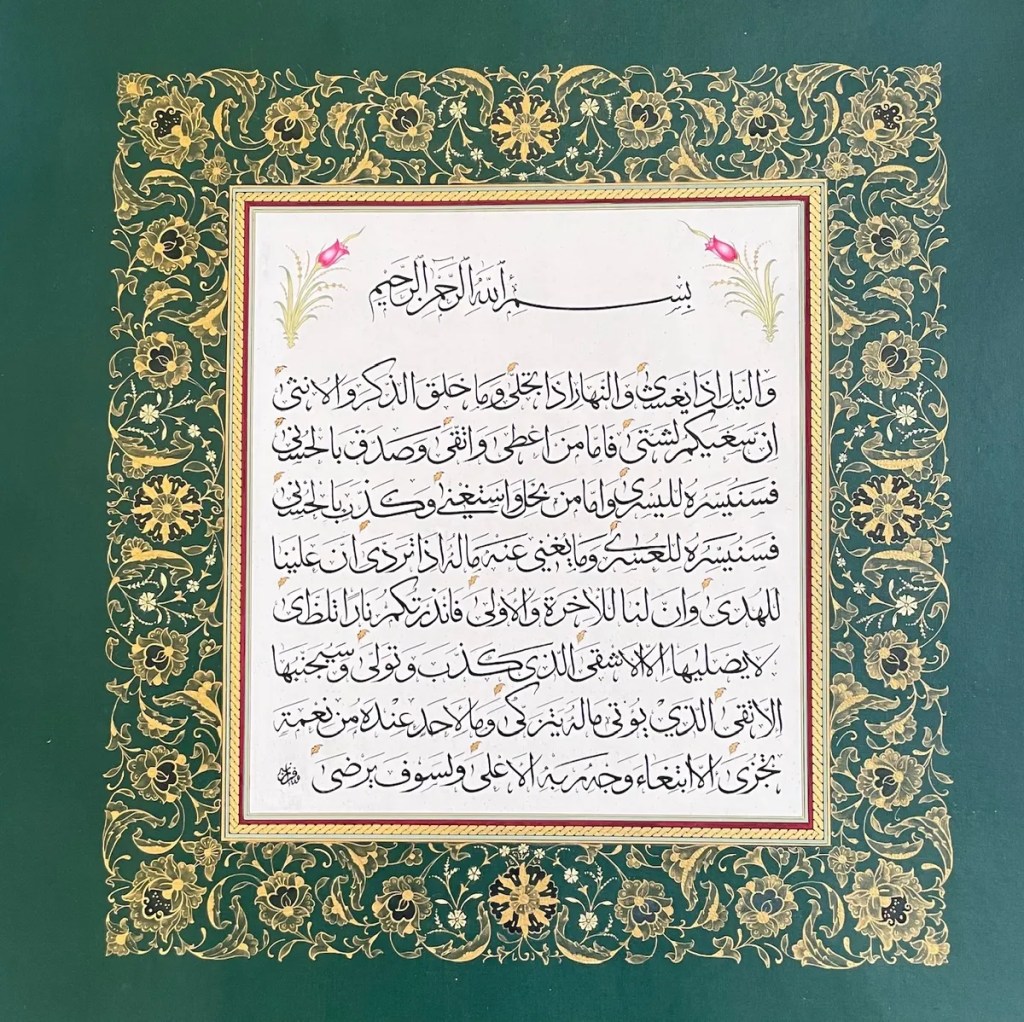 بسم الله الرحمن الرحيم
واليل اذا يغشى والنهار اذا تجلى وما خلق الذكر والانثى
ان سعيكم لشتى فاما من اعطى واتقى وصدق بالحسنى
فسنيسره لليسرى واما من بخل واستغنى وكذب بالحسنى
فسنيسره للعسرى وما يغنى عنه ماله اذا تردى ان علينا
للهدى وان لنا للاخرة والاولى فانذرتكم نارا تلظى
لا يصليها الا الاشقى الذى كذب وتولى وسيجنبها
الاتقى الذى يؤتى ماله يتزكى وما لاحد عنده من نعمة
تجزى الا ابتغاء وجه ربه الاعلى ولسوف يرضى